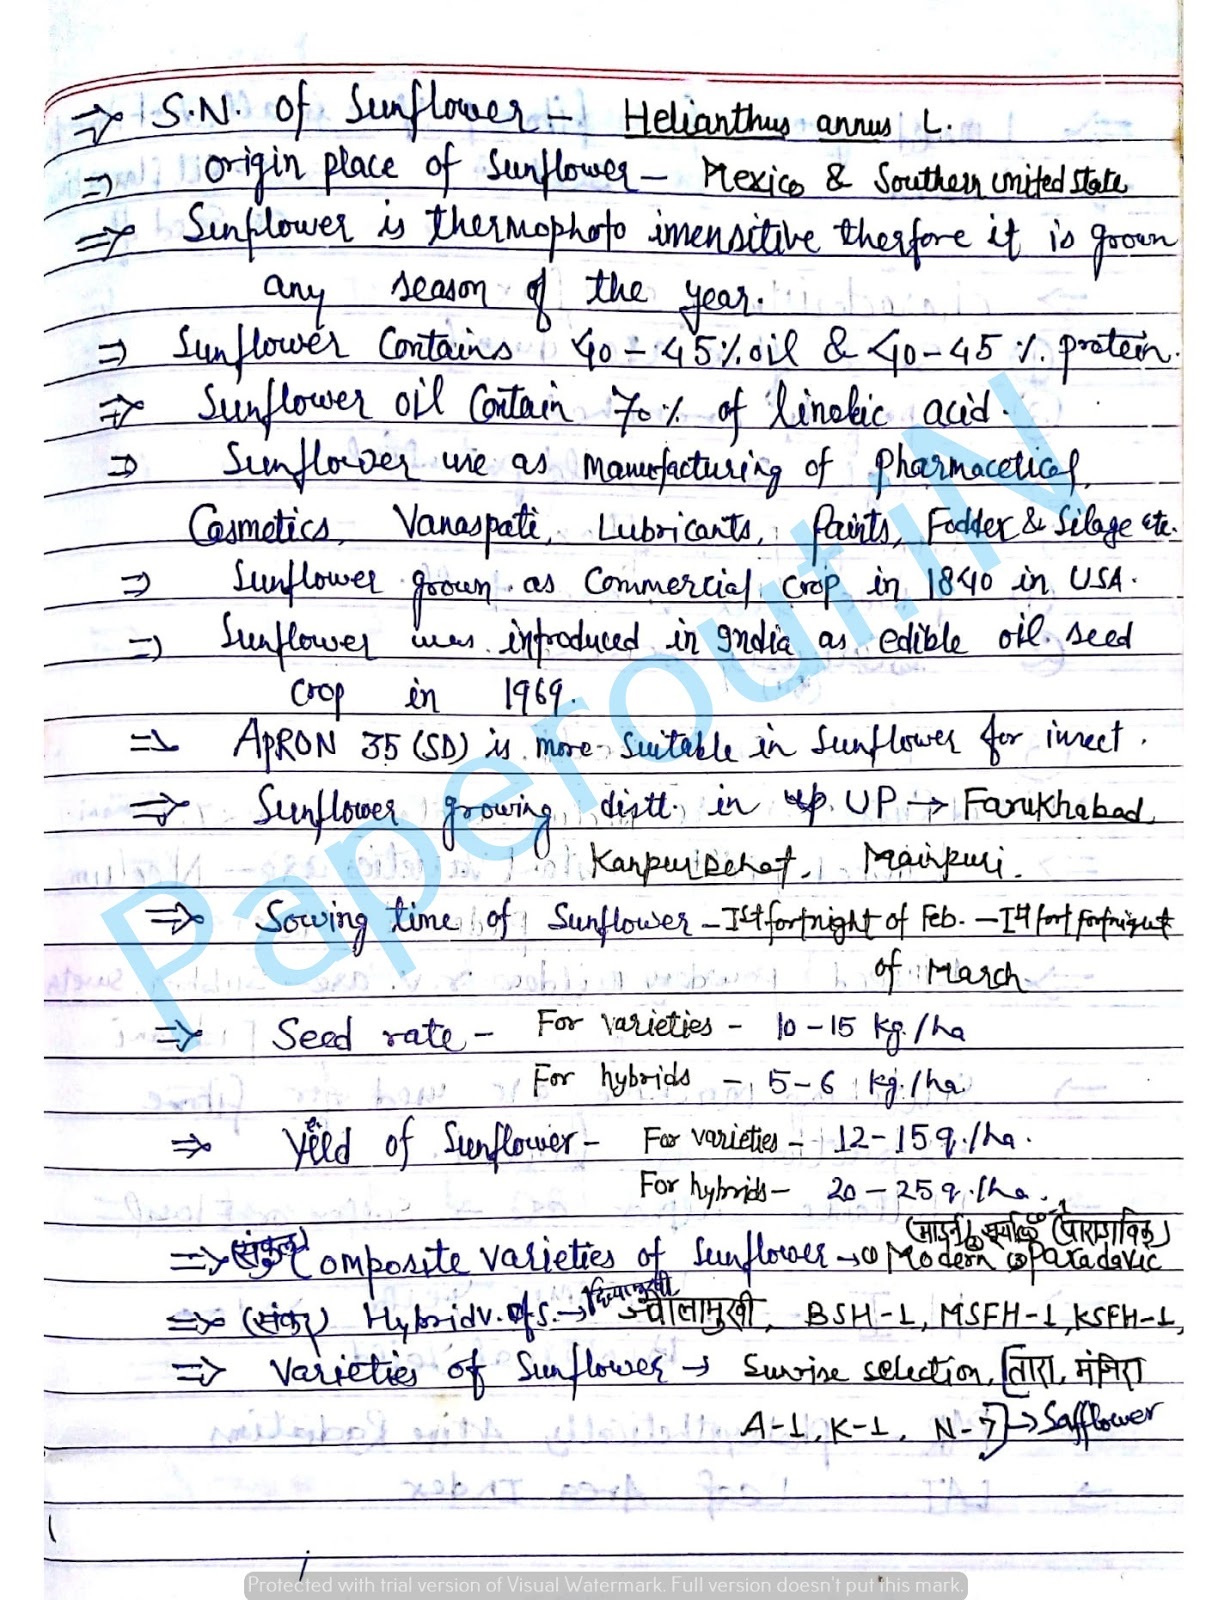 ⇒ S.N. of Sunflower – Helianthus annus L.
⇒ Origin place of Sunflower – Mexico & Southern united state
⇒ Sunflower is thermophoto insensitive therfore it is grown
any season of the year.
⇒ Sunflower Contains 40 – 45% oil & 40-45 % protein.
⇒ Sunflower oil Contain 70% of linoleic acid.
⇒ Sunflower use as manufacturing of Pharmacetical,
Cosmetics, Vanaspati, Lubricants, Paints, Fodder & Silage etc.
⇒ Sunflower grown as Commercial crop in 1840 in USA.
⇒ Sunflower was introduced in India as edible oil seed
crop in 1969.
⇒ APRON 35 (SD) is more suitable in Sunflower for insect.
⇒ Sunflower growing distt. in UP → Farukhabad,
Kanpur Dehat, Mainpuri.
⇒ Sowing time of Sunflower – Ist fortnight of Feb. – Ist fort fortnight
of March
⇒ Seed rate – For varieties – 10 – 15 kg./ha
For hybrids – 5 – 6 kg./ha
⇒ Yeild of Sunflower – For varieties – 12 – 15 q./ha.
For hybrids – 20 – 25 q./ha.
(मार्डन) सूर्या (पाराडाविक)
⇒ (संकुल) Composite varieties of Sunflower → ① Modern ③ Paradavic
⇒ (संकर) Hybrid v. of S. → दिव्यामुखी → ज्वालामुखी, BSH-1, MSFH-1, KSFH-1,
⇒ Varieties of Sunflower → Sunrise selection, [तारा, मंजिरा
A-1, K-1, N-7] → Safflower
PaperoutIN
Protected with trial version of Visual Watermark. Full version doesn't put this mark.